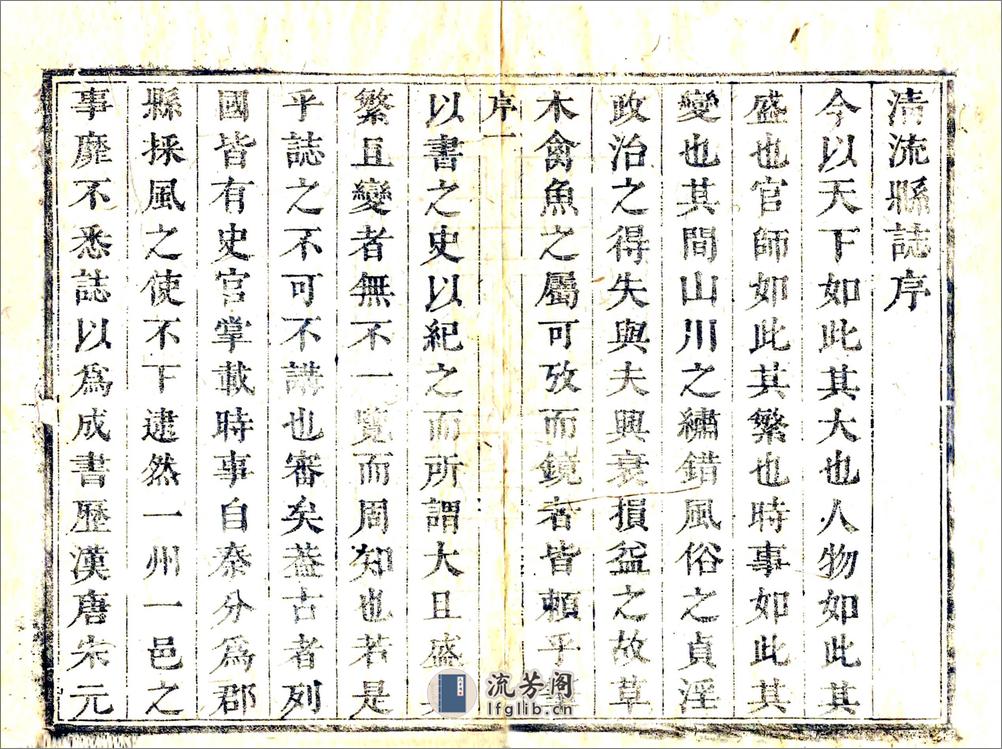 清流縣誌序
今以天下如此其大也人物如此其
盛也官師如此其繁也時事如此其
變也其間山川之繡錯風俗之貞淫
政治之得失與夫興衰損益之故草
木禽魚之屬可攷而鏡者皆頼乎
序一
以書之史以紀之而所謂大且盛
繁且變者無不一覽而周知也若是
乎誌之不可不講也審矣葢古者列
國皆有史官掌載時事自秦分爲郡
縣採風之使不下逮然一州一邑之
事靡不悉誌以爲成書歷漢唐宋元
流芳阁
lfglib.cn